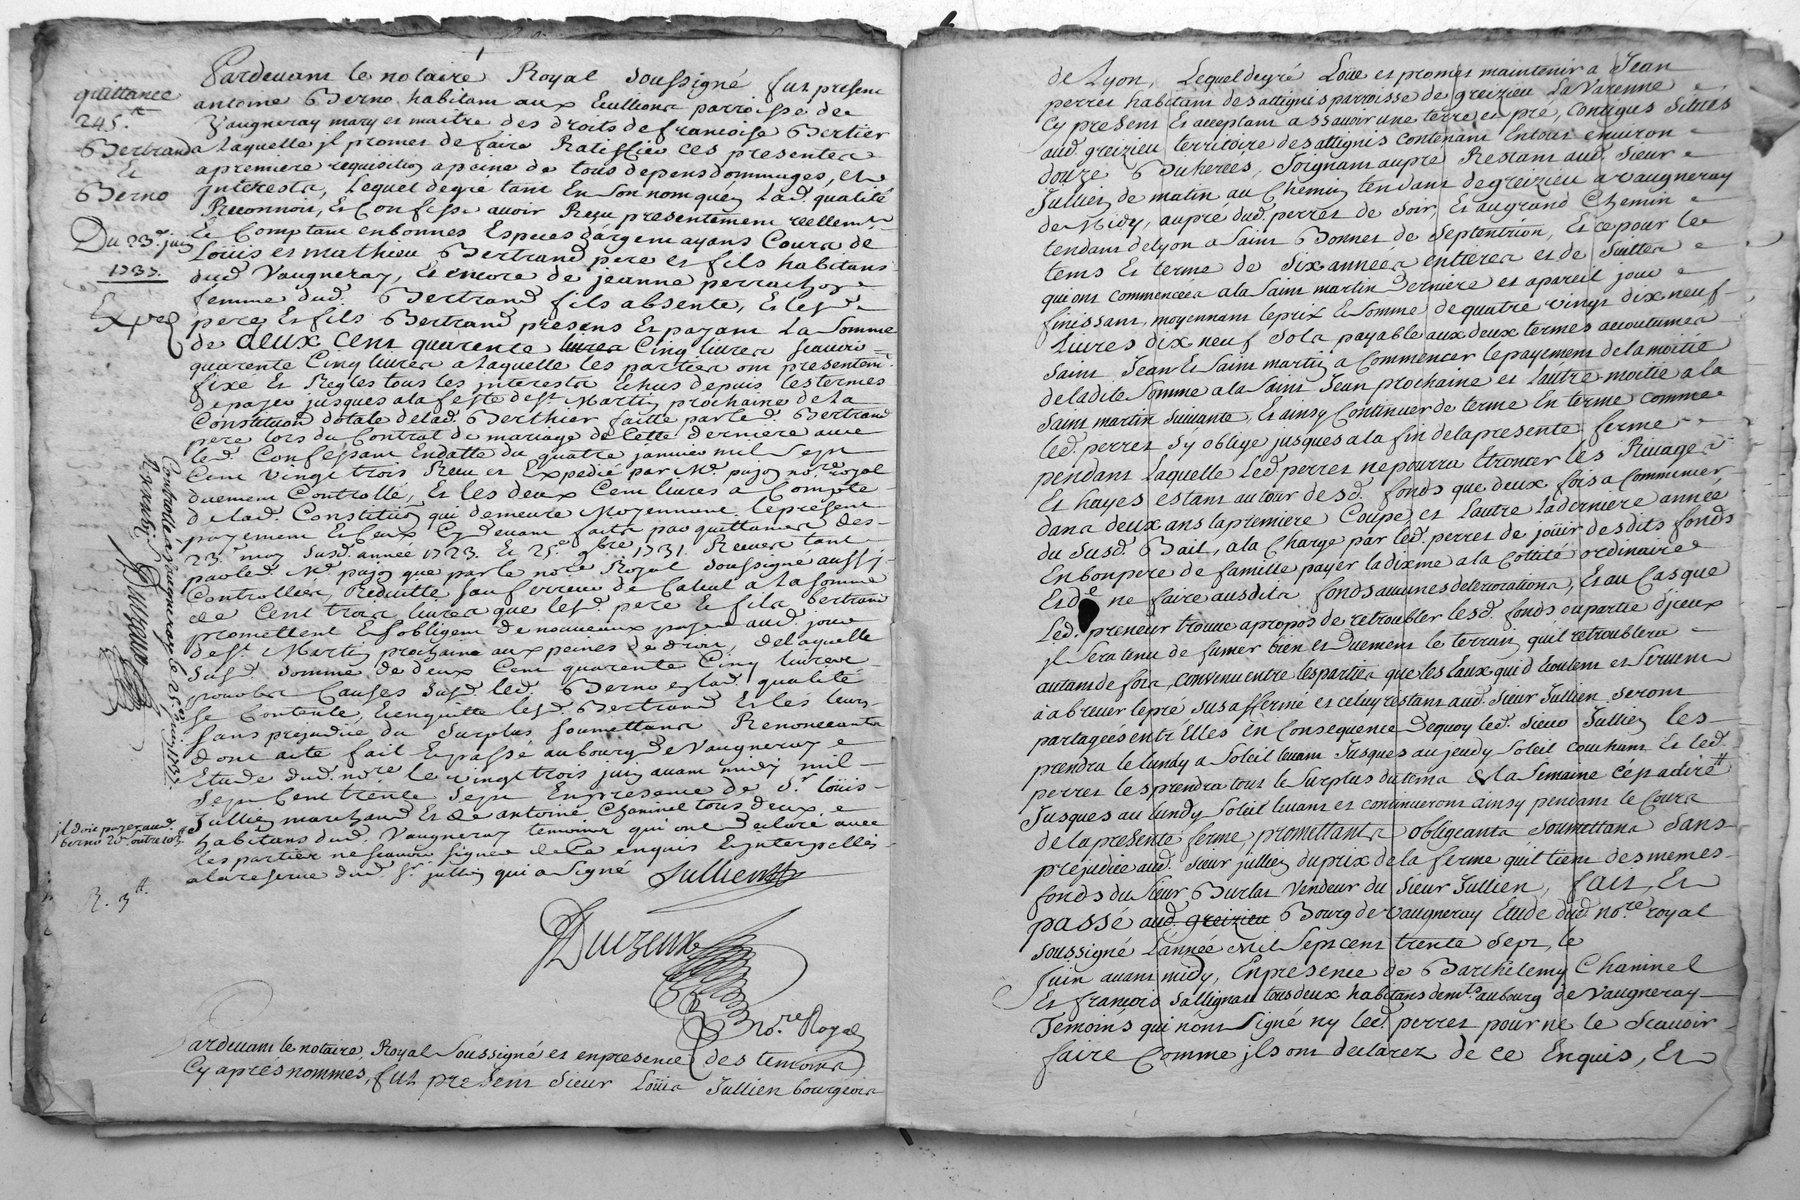 quittance
245.tt
Bertrand
Et
Berno
Du 23e juin
1737.
Expee
Pardevant le notaire Royal soussigné fut present
antoine Berno habitant aux Emillions parroisse de
Vaugneray mary et maitre des droits de francoise Bertier
a laquelle jl promet de faire Ratiffier ces presentes
a premiere requisition a peine de tous depens dommages, et
jnterests, Lequel degre tant En son nom quen Lad. qualité
Reconnoit, Et Confesse avoir Reçu presentement reellemt
Et Comptant en bonnes Especes d'argent ayans Cours de
Loüis et mathieu Bertrand pere et fils habitans
dud Vaugneray, Et encore de jeanne perrachon
femme dud. Bertrand fils absente, Et lesd
pere Et fils Bertrand presens Et payant La Somme
de deux cent quarente livres Cinq livres scavoir
quarente Cinq livres a laquelle les parties ont presentemt
fixé Et Reglés tous les jnterests Echus depuis les termes
de payer jusques a la feste de st Martin prochaine de la
Constitution dotale de lad. Berthier faitte par led. Bertrand
pere lors du Contrat de mariage de Cette derniere avec
led. Confessant En datte du quatre janvier mil sept
Cent vingt trois Receu et Expedié par Me pujon nore royal
duement Controllé, Et les deux Cent livres a Compte
de lad. Constitution qui demeure Moyennant le present
payement Et Ceux Cy devant faits par quittances des
23e may susd. année 1723. Et 25e 9bre 1731. Receues tant
par led. Me pujon que par le nore Royal soussigné aussy
Controllées, Reduitte sauf erreur de Calcul a la somme
de Cent trois livres que lesd. pere Et fils Bertrand
promettent Et sobligent de nouveaux payer aud. jour
de st Martin prochaine aux peines de droit, de laquelle
susd. somme de deux Cent quarente Cinq livres
pour les Causes susd. led. Berno en lad. qualité
se Contente, En quitte lesd. Bertrand Et les leurs
sans prejudice du surplus soumettans Renonceants
dont acte fait Et passé au bourg de Vaugneray
Etude dud. nore le vingt trois juin avant midy mil
sept Cent trente sept En presence de sr loüis
Jullien marchand Et de antoine Chaninel tous deux
habitans dud. Vaugneray temoins qui ont declaré avec
les parties ne scavoir signer de Ce enquis Et jnterpellés
a la reserve dud. sr jullien qui a signé Jullien
Controllé a Vaugneray le 25e juin 1737.
Duizeux
jl doit payer aud.
berno 20s outre
R. 3tt
Duizeux
nore Royal
Pardevant le notaire Royal soussigné et en presence des temoins
Cy aprés nommés, fut present sieur Loüis Jullien bourgeois
de Lyon, Lequel degré Loüe et promet maintenir a Jean
perret habitant des attignis parroisse de greizieu La Varenne
Cy present Et acceptant a ssavoir une terre et pré, Contigus situés
aud. greizieu territoire des attignis contenant En tout environ
douze Bicherées, joignant au pré Restant aud. sieur
Jullien de matin au Chemin tendant de greizieu a vaugneray
de Midy, au pré dud. perret de soir Et au grand Chemin
tendant de lyon a saint Bonnet de septentrion, Et ce pour le
tems Et terme de six années entieres et de suittes
qui ont commencées a la saint martin derniere et a pareil jour
finissant, moyennant le prix Et somme de quatre vingt dix neuf
Livres dix neuf sols payable aux deux termes accoutumés
saint Jean Et saint martin a Commencer le payement de la moitié
de la dite somme a la saint Jean prochaine et L'autre moitié a la
saint martin suivante, Et ainsy Continuer de terme En terme comme
led. perret s'y oblige jusques a la fin de la presente ferme
pendant Laquelle Led. perret ne pourra troncer les Rivages
Et hayes estant autour desd. fonds que deux fois a Commencer
dans deux ans la premiere Coupe et L'autre La derniere année
du susd. Bail, a la Charge par led. perret de joüir desdits fonds
En bon pere de famille payer la dixme a la cottité ordinaire
Et de ne faire ausdits fonds aucunes deteriorations, Et au Cas que
Led. preneur trouve a propos de retroubler lesd. fonds ou partie d'jceux
jl sera tenu de famer bien et duement le terrain qu'il retroublera
autant de fois, convenu entre les parties que les Eaux qui d'Ecoulent et servent
a abreuver le pré sus affermé et celuy restant aud. sieur Jullien seront
partagées entr'Elles En Consequence dequoy led. sieur Jullien les
prendra le lundy a soleil levant jusques au jeudy soleil couchant Et led.
perret les prendra tout le surplus du tems de la semaine c'est a dire
jusques au lundy soleil levant et continueront ainsy pendant le Cours
de la presente ferme promettants obligeants soumettans sans
prejudice aud. sieur jullien du prix de la ferme qu'il tient desmemes
fonds du sieur Burlat Vendeur du sieur Jullien, fait, Et
passé aud. greizieu Bourg de vaugneray Etude dud. nore royal
soussigné L'année Mil sept cent trente sept, le
juin avant midy, En presence de Barthelemy Chaninel
Et françois sallignat tous deux habitans demts au bourg de Vaugneray
Temoins qui n'ont signé ny led. perret pour ne le scavoir
faire Comme jls ont declarez de ce Enquis, Et